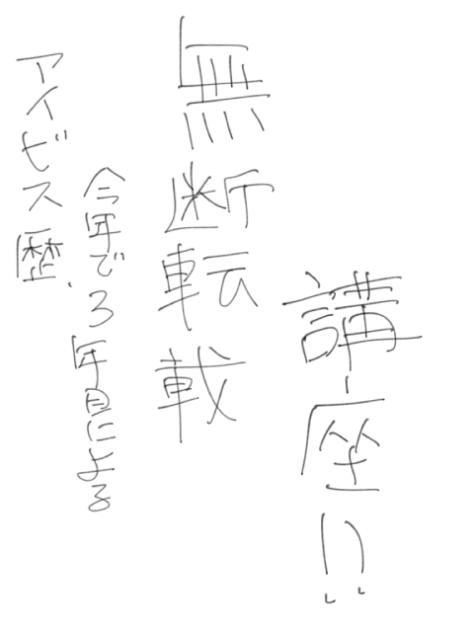 アイビス歴、
今年で3年目による
無断転載
講座!!